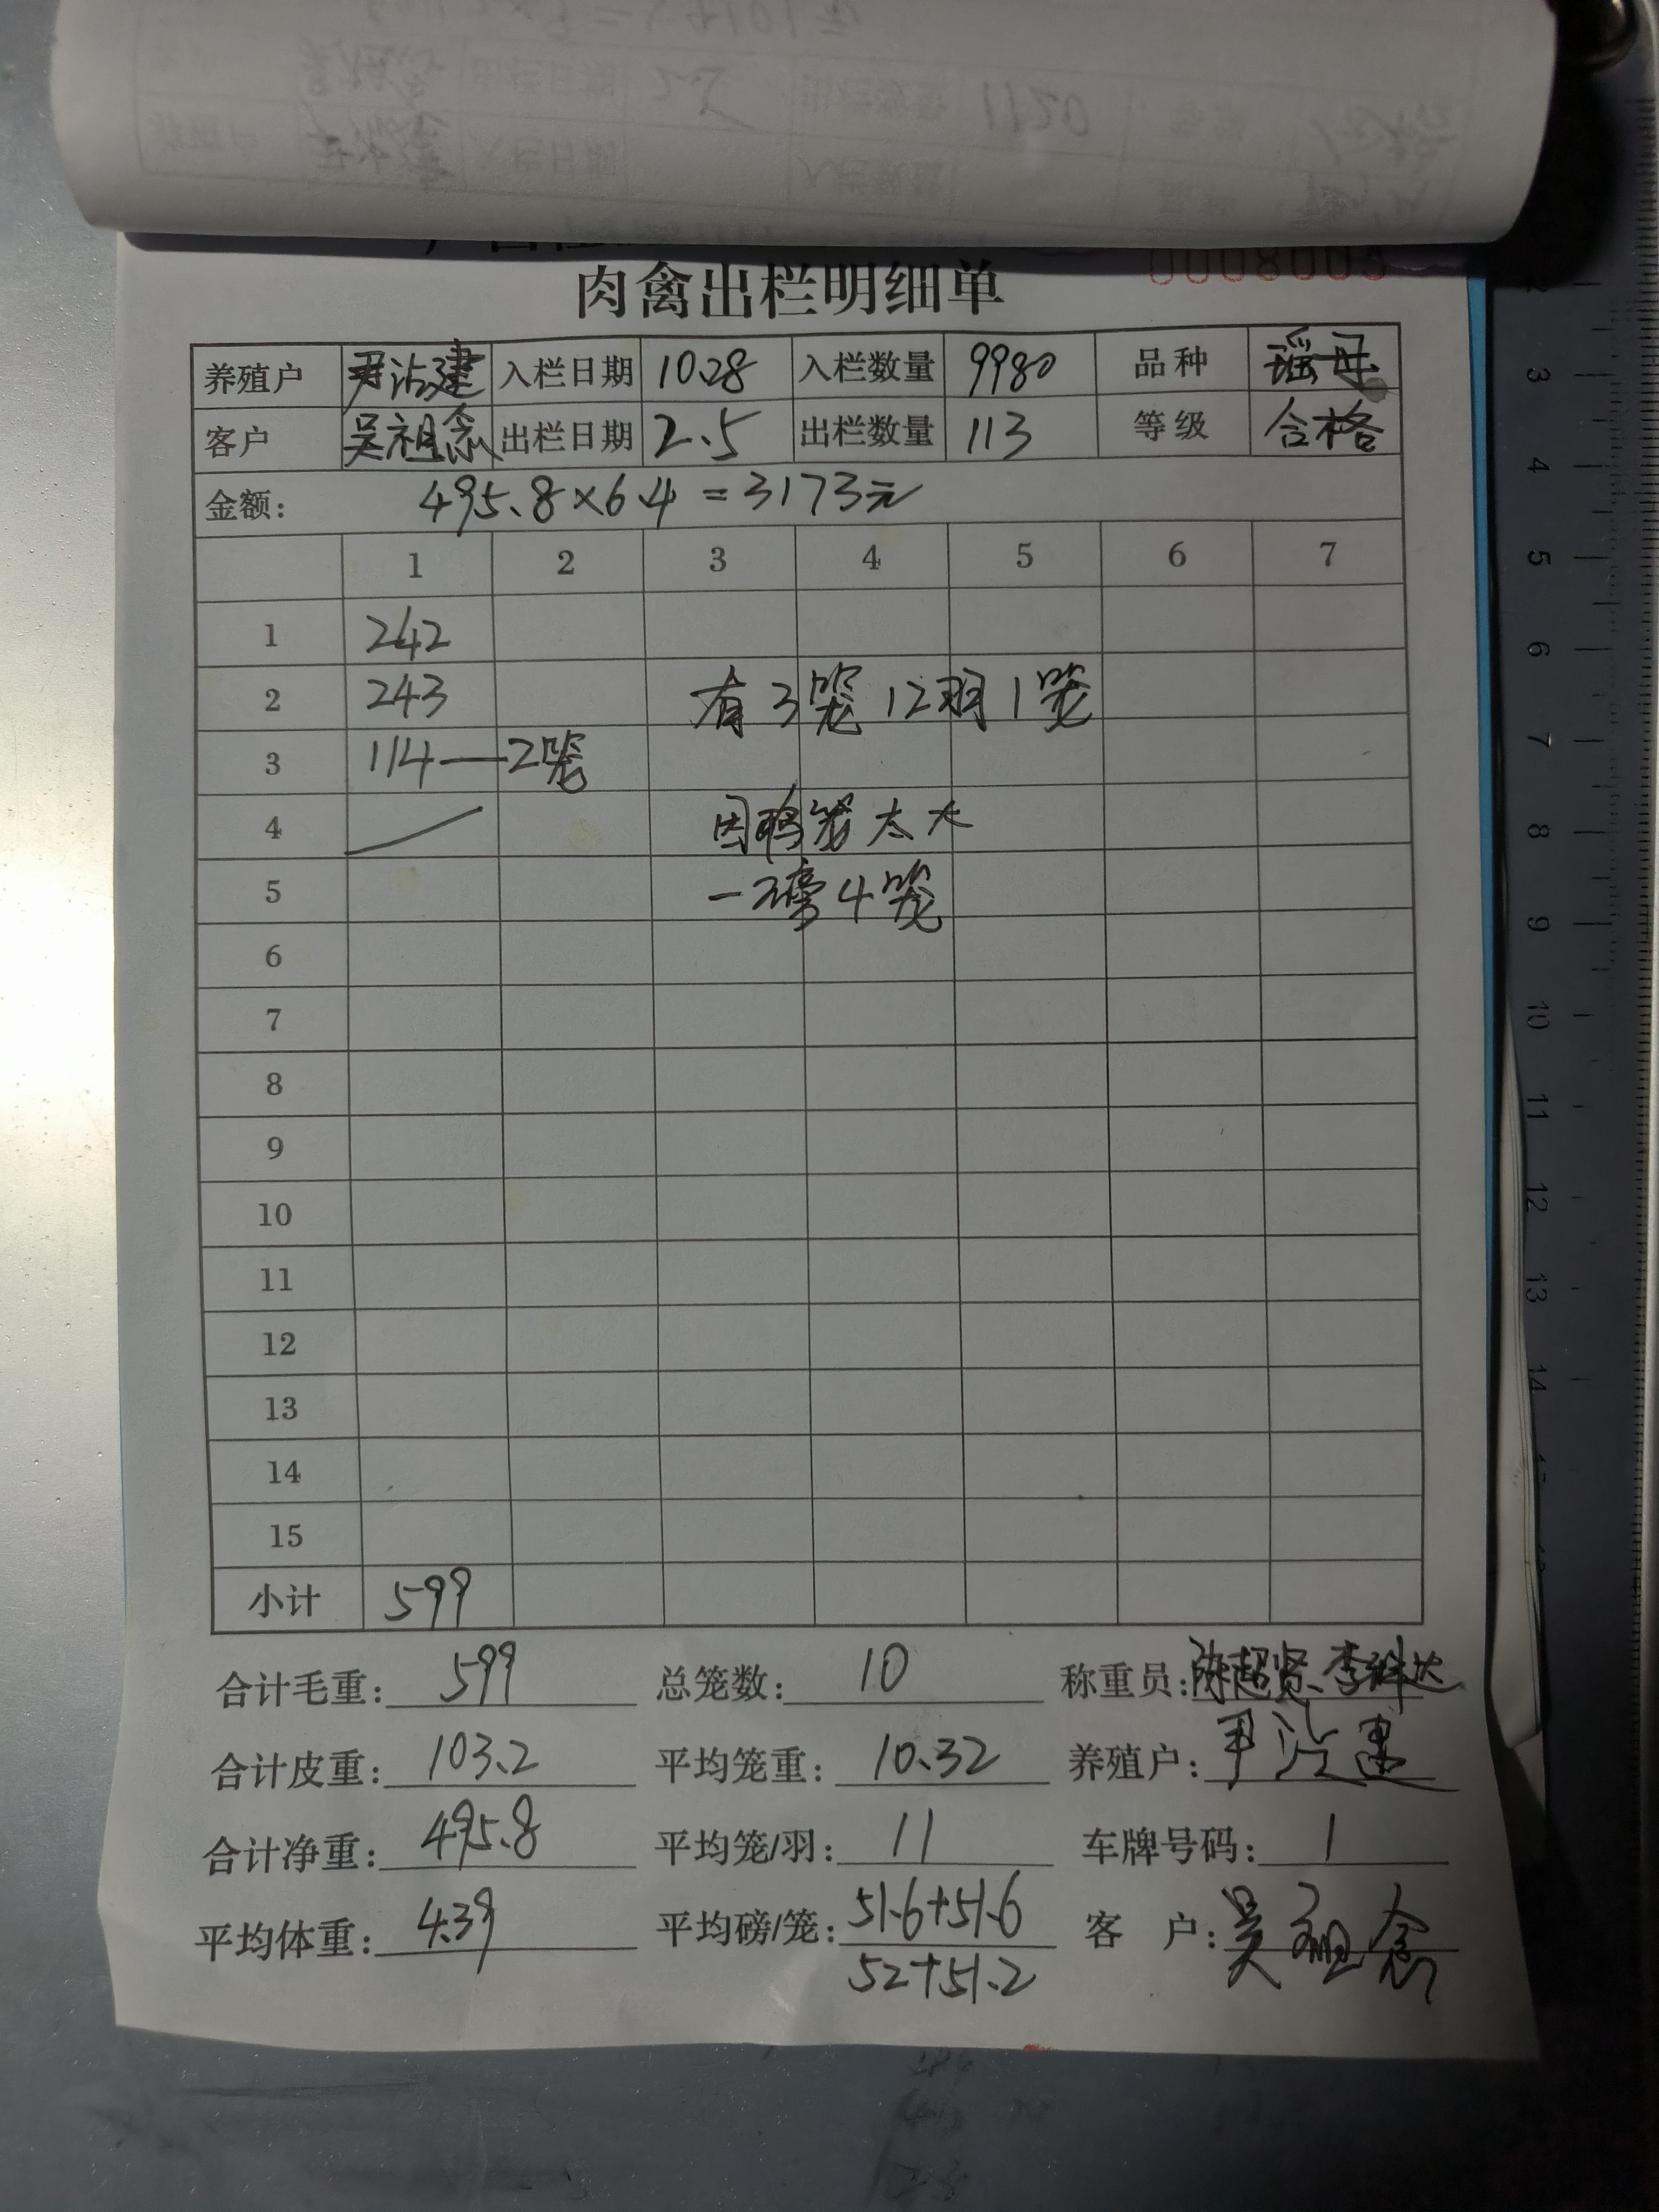 肉禽出栏明细单
养殖户 尹沾建 入栏日期 10.28 入栏数量 9980 品种 瑶母
客户 吴祖念 出栏日期 2.5 出栏数量 113 等级 合格
金额: 495.8×6.4=3173元
1 2 3 4 5 6 7
1 242
2 243 有3笼12羽1笼
3 114—2笼
4 因鸭笼太大
5 一磅4笼
6
7
8
9
10
11
12
13
14
15
小计 599
合计毛重: 599 总笼数: 10 称重员: 陈超贤、李
合计皮重: 103.2 平均笼重: 10.32 养殖户: 尹沾建
合计净重: 495.8 平均笼/羽: 11 车牌号码: 1
平均体重: 4.39 平均磅/笼: 51.6+51.6 客 户: 吴祖念
52+51.2